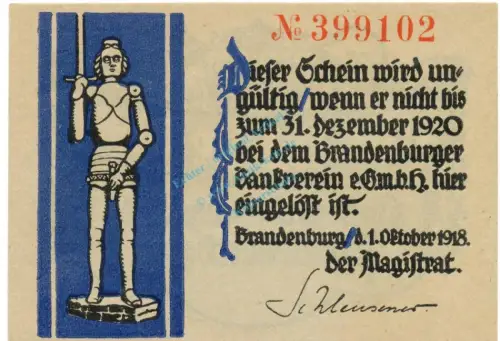 № 399102
Dieser Schein wird un-
gültig/wenn er nicht bis
zum 31. dezember 1920
bei dem Brandenburger
Bankverein e.G.m.b.H. hier
eingelöst ist.
Brandenburg/d. 1. Oktober 1918.
der Magistrat.
Schleusener.